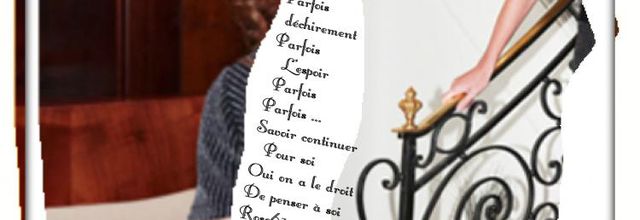 Parfois
déchirement
Parfois
L'espoir
Parfois
Parfois ...
Savoir continuer
Pour soi
Oui on a le droit
De penser à soi